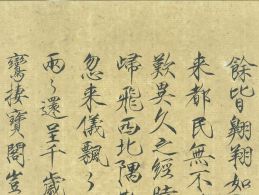 餘皆翱翔如
来都民無不
歎異久之經時
歸飛西北隅
忽来儀飄〻
兩〻還呈千歲
鸞棲寶閣豈